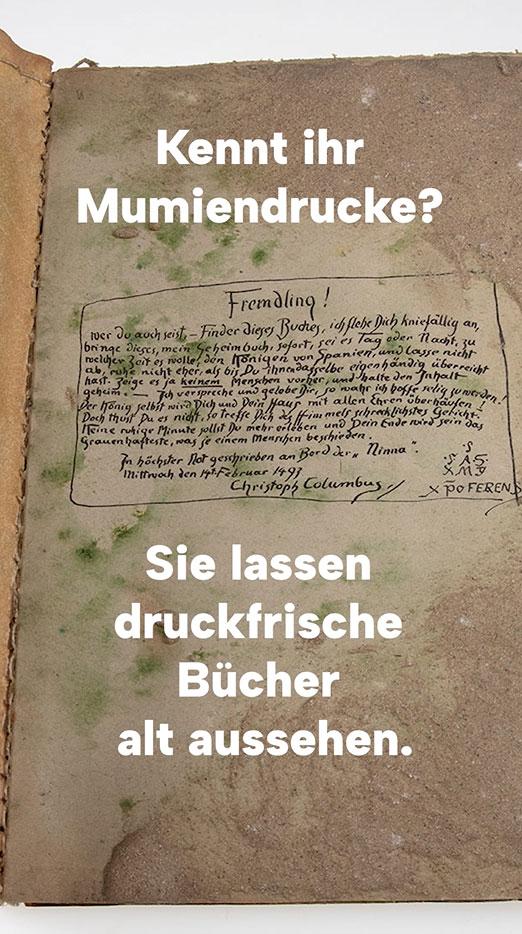 Kennt ihr
Mumiendrucke?
Fremdling!
wer du auch seist, – Finder dieses Buches, ich flehe Dich kniefällig an,
bringe dieses, mein Geheimbuch, sofort, sei es Tag oder Nacht, zu
welcher Zeit es wolle, den Königen von Spanien, und lasse nicht
ab, ruhe nicht eher, als bis Du Ihnen dasselbe eigenhändig überreicht
hast. Zeige es ja keinem Menschen vorher, und halte den Inhalt
geheim. — Ich verspreche und gelobe Dir, so wahr ich hoffe selig zu werden!
Der König selbst wird Dich und Dein Haus mit allen Ehren überhäufen!
Doch thust Du es nicht, so treffe Dich des Himmels schrecklichstes Gericht.
Keine ruhige Minute sollst Du mehr erleben und Dein Ende wird sein das
Grauenhafteste, was je einem Menschen beschieden.
In höchster Not geschrieben an Bord der „Ninna“.
Mittwoch den 14t Februar 1493
Christoph Columbus
.S
.S.A.S.
X M Y
XPOFERENS
Sie lassen
druckfrische
Bücher
alt aussehen.